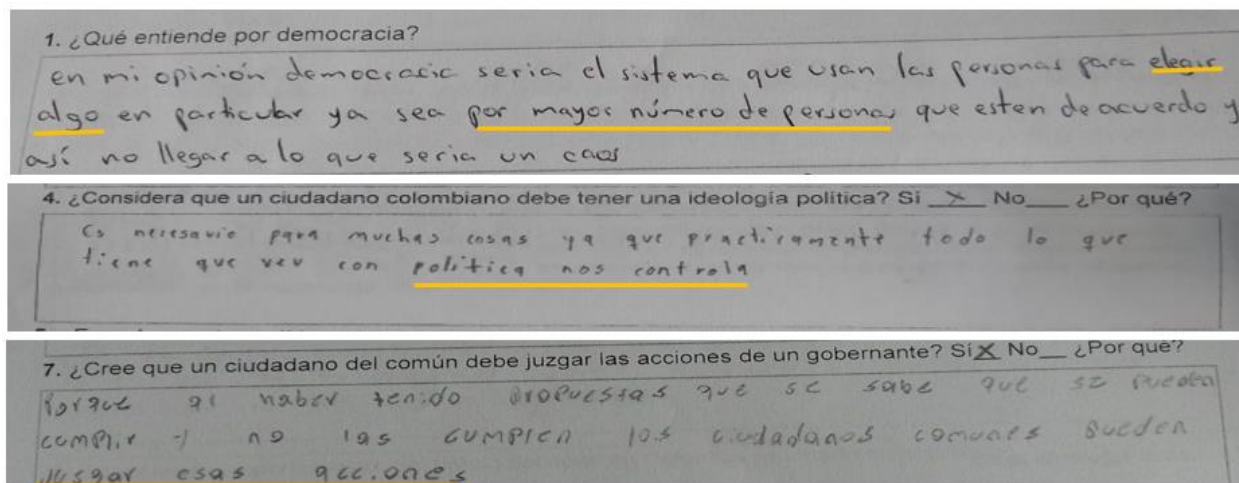 1. ¿Qué entiende por democracia?
en mi opinión democracia seria el sistema que usan las personas para elegir
algo en particular ya sea por mayor número de personas que esten de acuerdo y
así no llegar a lo que seria un caos
4. ¿Considera que un ciudadano colombiano debe tener una ideología política? Sí X No____ ¿Por qué?
Es necesario para muchas cosas ya que practicamente todo lo que
tiene que ver con politica nos controla
7. ¿Cree que un ciudadano del común debe juzgar las acciones de un gobernante? Sí X No___ ¿Por qué?
Porque al haber tenido propuestas que se sabe que se pueden
cumplir y no las cumplen los ciudadanos comunes pueden
jusgar esas acciones